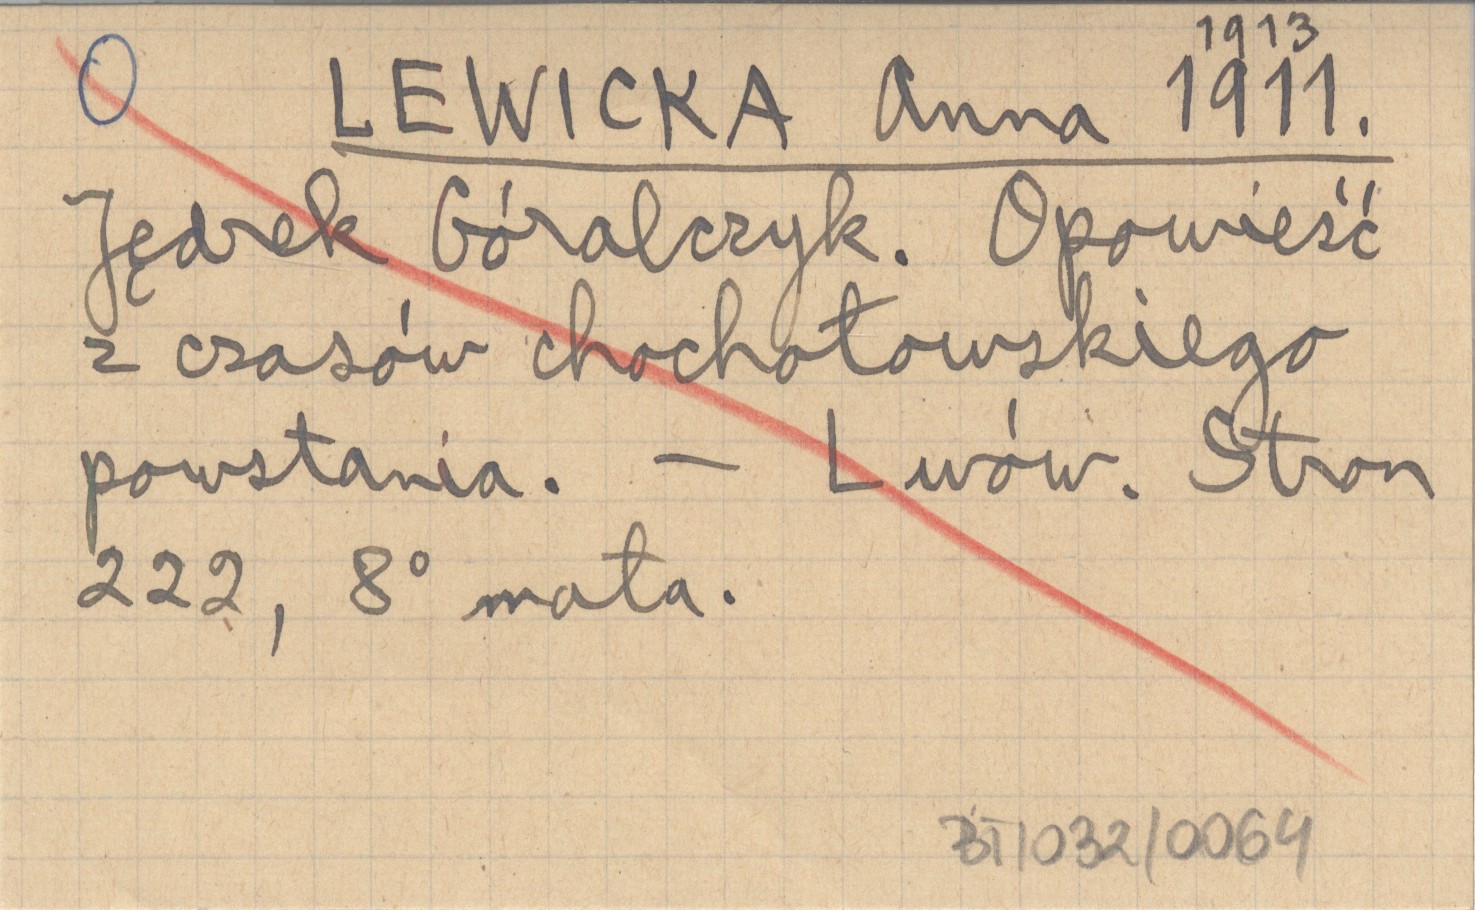 1913
O LEWICKA Anna 1911.
Jędrek Góralczyk. Opowieść
z czasów chochołowskiego
powstania. — Lwów. Stron
222, 8° mała.
BT/032/0064